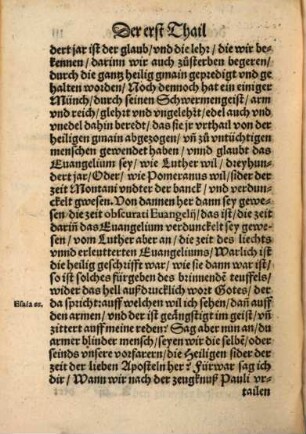 Der erst Thail
dert jar ist der glaub/vnd die lehr/ die wir be-
kennen/ darinn wir auch zůsterben begeren/
durch die gantz heilig gmain gepredigt vnd ge
halten worden/ Noch dennoch hat ein einiger
Münch/durch seinen Schwermengeist/arm
vnd reich/ glehrt vnd vngelehrt/edel auch vnd
vnedel dahin beredt/ das sie jr vrthail von der
heiligen gmain abgezogen/ vñ zů vntüchtigen
menschen gewendet haben/ vnnd glaubt das
Euangelium sey/ wie Luther wil/ dreyhun-
dert jar/ Oder/ wie Pomeranus wil/sider der
zeit Montani vndter der banck/ vnd verdun-
ckelt gwesen. Von dannen her dann sey gewe-
sen/ die zeit obscurati Euangelij/das ist/ die zeit
dariñ das Euangelium verdunckelt sey gewe-
sen/ vom Luther aber an/ die zeit des liechts
vnnd erleutterten Euangeliums/ Warlich ist
die heilig geschrifft war/ wie sie dann war ist/
so ist solches fürgeben des brinnende teuffels/
wider das hell außdrucklich wort Gotes/ der
Esaia 66.
da spricht: auff welchen wil ich sehen/ dañ auff
den armen/ vnd der ist geängstigt im geist/ vñ
zittert auff meine reden? Sag aber nun an/du
armer blinder mensch/ seyen wir die selbē/ oder
seinds vnsere vorfarern/ die Heiligen sider der
zeit der lieben Aposteln her? Fürwar sag ich
dir/ Wann wir nach der zeugknuß Pauli vr-
tailen